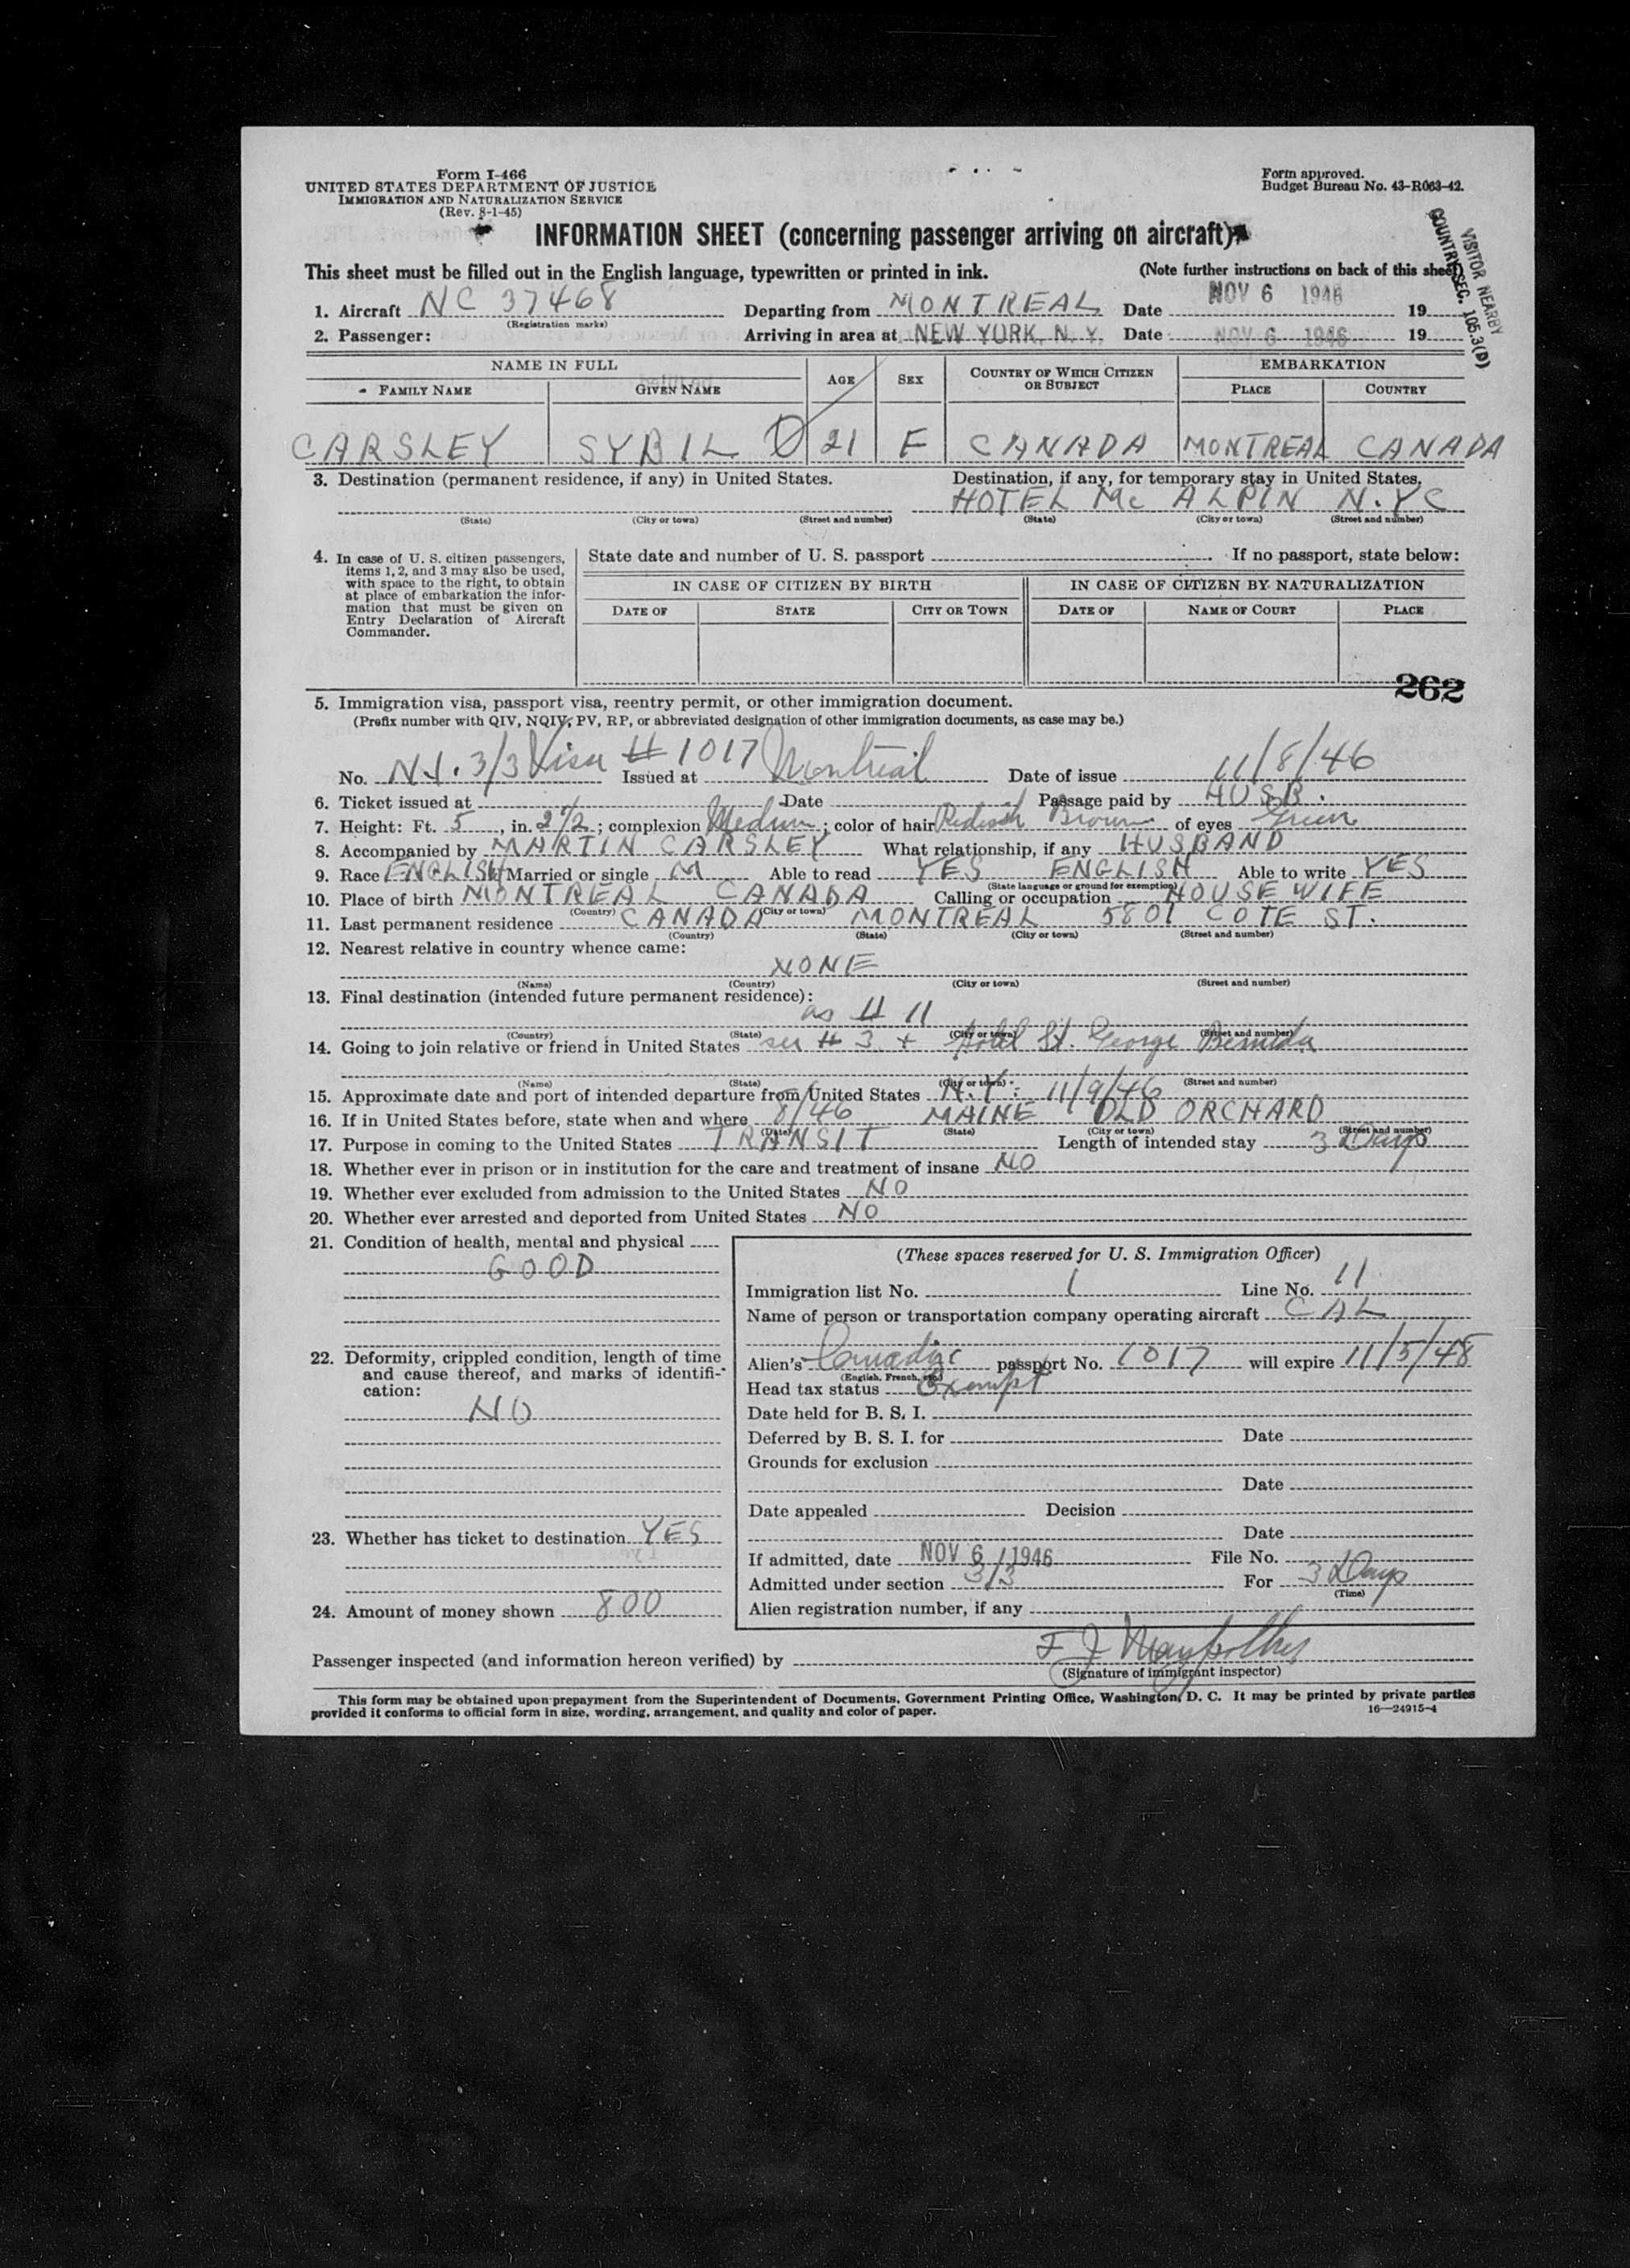 Form I-466
UNITED STATES DEPARTMENT OF JUSTICE
IMMIGRATION AND NATURALIZATION SERVICE
(Rev. 8-1-45)
Form approved.
Budget Bureau No. 43-R063-42.
INFORMATION SHEET (concerning passenger arriving on aircraft)
VISITOR NEARBY
COUNTRY SEC. 105.3(D)
This sheet must be filled out in the English language, typewritten or printed in ink. (Note further instructions on back of this sheet)
1. Aircraft NC 37468 Departing from MONTREAL Date NOV 6 1946 19
(Registration marks)
2. Passenger: Arriving in area at NEW YORK, N. Y. Date NOV 6 1946 19
NAME IN FULL AGE SEX COUNTRY OF WHICH CITIZEN OR SUBJECT EMBARKATION
FAMILY NAME GIVEN NAME PLACE COUNTRY
CARSLEY SYBIL D 21 F CANADA MONTREAL CANADA
3. Destination (permanent residence, if any) in United States. Destination, if any, for temporary stay in United States.
HOTEL Mc ALPIN N.YC
(State) (City or town) (Street and number) (State) (City or town) (Street and number)
4. In case of U. S. citizen passengers, items 1, 2, and 3 may also be used, with space to the right, to obtain at place of embarkation the information that must be given on Entry Declaration of Aircraft Commander.
State date and number of U. S. passport If no passport, state below:
IN CASE OF CITIZEN BY BIRTH IN CASE OF CITIZEN BY NATURALIZATION
DATE OF STATE CITY OR TOWN DATE OF NAME OF COURT PLACE
262
5. Immigration visa, passport visa, reentry permit, or other immigration document.
(Prefix number with QIV, NQIV, PV, RP, or abbreviated designation of other immigration documents, as case may be.)
No. 3/3 Visa # 1017 Issued at Montreal Date of issue 11/8/46
6. Ticket issued at Date Passage paid by HUSB.
7. Height: Ft. 5, in. 2 1/2; complexion Medium; color of hair Redish Brown of eyes Green
8. Accompanied by MARTIN CARSLEY What relationship, if any HUSBAND
9. Race ENGLISH Married or single M Able to read YES ENGLISH Able to write YES
(State language or ground for exemption)
10. Place of birth MONTREAL CANADA Calling or occupation HOUSE WIFE
(Country) (City or town)
11. Last permanent residence CANADA MONTREAL 5801 COTE ST.
(Country) (State) (City or town) (Street and number)
12. Nearest relative in country whence came:
NONE
(Name) (Country) (City or town) (Street and number)
13. Final destination (intended future permanent residence):
as # 11
(Country) (State) (City or town) (Street and number)
14. Going to join relative or friend in United States see # 3 + Hotel St. George Bermuda
(Name) (State) (City or town) (Street and number)
15. Approximate date and port of intended departure from United States N.Y. 11/9/46
16. If in United States before, state when and where 8/46 MAINE OLD ORCHARD
(Date) (State) (City or town) (Street and number)
17. Purpose in coming to the United States TRANSIT Length of intended stay 3 Days
18. Whether ever in prison or in institution for the care and treatment of insane NO
19. Whether ever excluded from admission to the United States NO
20. Whether ever arrested and deported from United States NO
21. Condition of health, mental and physical
GOOD
22. Deformity, crippled condition, length of time and cause thereof, and marks of identification:
NO
23. Whether has ticket to destination YES
24. Amount of money shown 800
(These spaces reserved for U. S. Immigration Officer)
Immigration list No. 1 Line No. 11
Name of person or transportation company operating aircraft CAL
Alien's Canadian passport No. 1017 will expire 11/5/48
(English, French, etc.)
Head tax status Exempt
Date held for B. S. I.
Deferred by B. S. I. for Date
Grounds for exclusion
Date
Date appealed Decision
Date
If admitted, date NOV 6 1946 File No.
Admitted under section 3/3 For 3 Days
(Time)
Alien registration number, if any
Passenger inspected (and information hereon verified) by F J
(Signature of immigrant inspector)
This form may be obtained upon prepayment from the Superintendent of Documents, Government Printing Office, Washington, D. C. It may be printed by private parties
provided it conforms to official form in size, wording, arrangement, and quality and color of paper. 16—24915-4